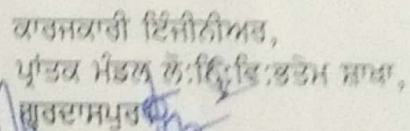 ਕਾਰਜਕਾਰੀ ਇੰਜੀਨੀਅਰ,
ਪ੍ਰਾਂਤਕ ਮੰਡਲ ਲੋ:ਨਿ:ਵਿ:ਭਤੇਮ ਸ਼ਾਖਾ,
ਗੁਰਦਾਸਪੁਰ